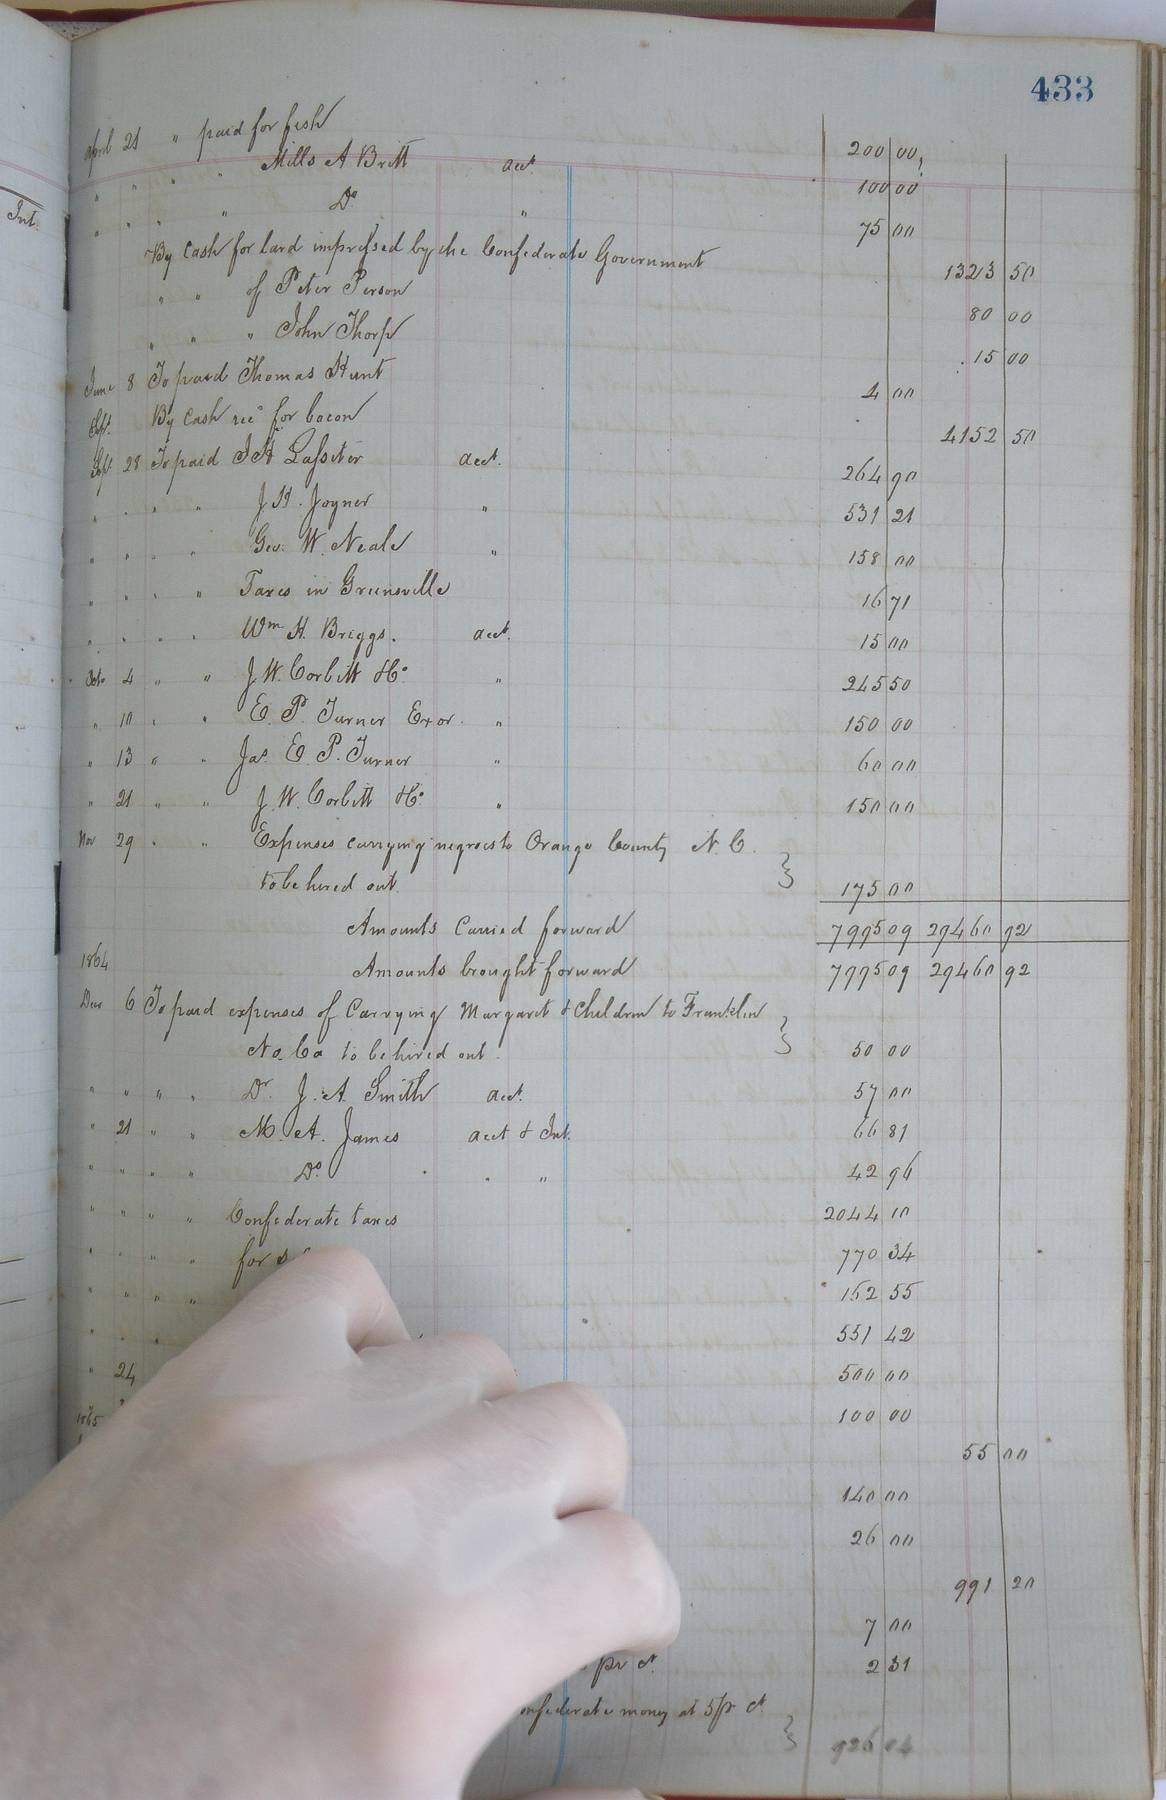 433
Int.
April 21 " paid for fish 200 00
" " " " Mills A Britt acct. 100 00
" " " " Do " 75 00
By cash for lard impressed by the Confederate Government 1323 50
" " of Peter Person 80 00
" " " John Thorp 15 00
June 8 To paid Thomas Hunt 4 00
Sept. By Cash rec'd for bacon 4152 50
Sept 28 To paid J H Lassiter acct. 264 90
" " " " J. H. Joyner " 531 21
" " " " Geo. W. Neale " 158 00
" " " " Taxes in Greensville 16 71
" " " " Wm H. Briggs. acct. 15 00
Oct. 4 " " J. W. Corbitt & Co " 245 50
" 10 " " E. P. Turner Exor. " 150 00
" 13 " " Jas. E. P. Turner " 60 00
" 21 " " J. W. Corbitt & Co " 150 00
Nov 29 " " Expenses carrying negroes to Orange County N. C.
to be hired out. 175 00
Amounts Carried forward 7995 09 29460 92
1864 Amounts brought forward 7995 09 29460 92
Dec 6 To paid expenses of Carrying Margaret & Children to Franklin
No. Ca to be hired out. 50 00
" " " " Dr. J. A. Smith acct. 57 00
" 21 " " M. A. James acct & Int. 66 81
" " " " Do " " 42 96
" " " " Confederate taxes 2044 10
" " " " for 770 34
" " " " 152 55
" " " 551 42
" 24 500 00
1865 100 00
55 00
140 00
26 00
991 20
7 00
pr ct. 2 31
onfederate money at 5 pr ct.
926 04